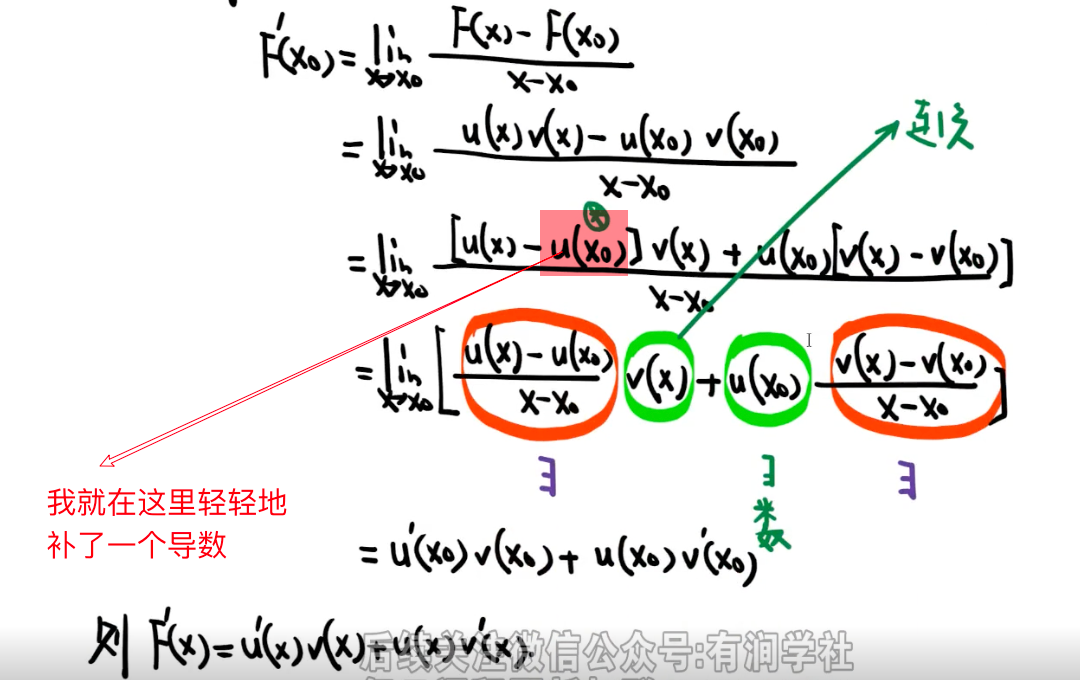 F'(x₀) = lim x→x₀ (F(x) - F(x₀)) / (x - x₀)
= lim x→x₀ (u(x)v(x) - u(x₀)v(x₀)) / (x - x₀)
连续
= lim x→x₀ ([u(x) - u(x₀)]v(x) + u(x₀)[v(x) - v(x₀)]) / (x - x₀)
= lim x→x₀ [(u(x) - u(x₀)) / (x - x₀) v(x) + u(x₀) (v(x) - v(x₀)) / (x - x₀)]
∃ ∃ ∃
常数
我就在这里轻轻地
补了一个导数
= u'(x₀)v(x₀) + u(x₀)v'(x₀)
则 F'(x) = u'(x)v(x) + u(x)v'(x).
后续关注微信公众号:有润学社